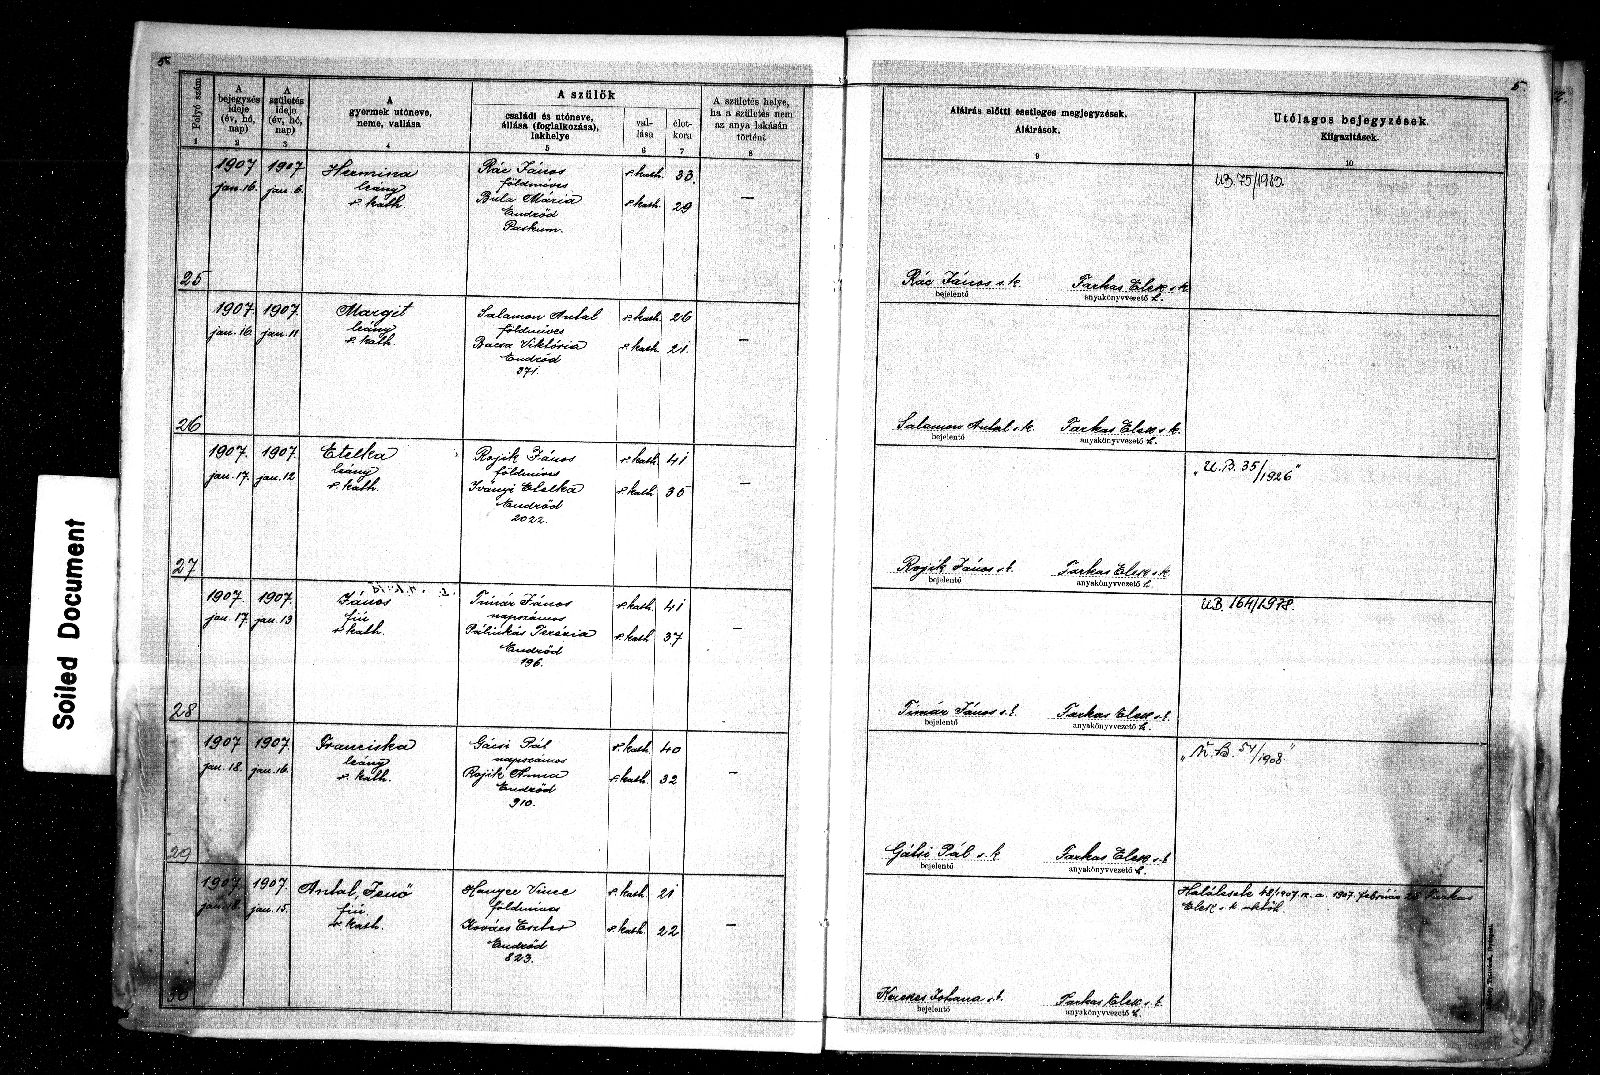 5.
Folyó szám
A bejegyzés ideje (év, hó, nap)
A születés ideje (év, hó, nap)
A gyermek utóneve, neme, vallása
A szülők
családi és utóneve, állása (foglalkozása), lakhelye
val-lása
élet-kora
A születés helye, ha a születés nem az anya lakásán történt
1 2 3 4 5 6 7 8
1907 1907 Hermina Rác János r. kath. 33.
jan. 16. jan. 6. leány földmíves
r. kath. Bula Mária r. kath. 29 —
Endrőd
Paskum.
25
1907 1907. Margit Salamon Antal r. kath. 26
jan. 16. jan. 11 leány földmíves
r. kath. Bacsa Viktória r. kath. 21. —
Endrőd
371.
26
1907. 1907. Etelka Rojik János r. kath. 41
jan. 17. jan. 12 leány földmíves
r. kath. Iványi Etelka r. kath. 35 —
Endrőd
2022.
27
1907 1907. János Tímár János r. kath. 41
jan. 17. jan. 13 fiú napszámos
r. kath. Pálinkás Terézia r. kath. 37 —
Endrőd
196.
28
1907 1907. Franciska Gácsi Pál r. kath. 40
jan. 18. jan. 16. leány napszámos
r. kath. Rojik Anna r. kath. 32 —
Endrőd
910.
29
1907 1907. Antal, Jenő Hanyec Vince r. kath. 21
jan. 18. jan. 15. fiú. földmíves
r. kath. Kovács Eszter r. kath. 22 —
Endrőd
823.
30
5
Aláírás előtti esetleges megjegyzések.
Aláírások.
9
Utólagos bejegyzések.
Kiigazítások.
10
UB. 75/1983.
Rác János s. k. Farkas Elek s. k.
bejelentő anyakönyvvezető h.
Salamon Antal s. k. Farkas Elek s. k.
bejelentő anyakönyvvezető h.
„U. B. 35/1926"
Rojik János s. k. Farkas Elek s. k.
bejelentő anyakönyvvezető h.
UB. 164/1978.
Tímár János s. k. Farkas Elek s. k.
bejelentő anyakönyvvezető h.
54/1908"
Gátsi Pál s. k. Farkas Elek s. k.
bejelentő anyakönyvvezető h.
Halálesete 48/1907. a. a. 1907. február 28 Farkas
Elek s. k.
Kerekes Johana s. k. Farkas Elek s. k.
bejelentő anyakönyvvezető h.
Soiled Document